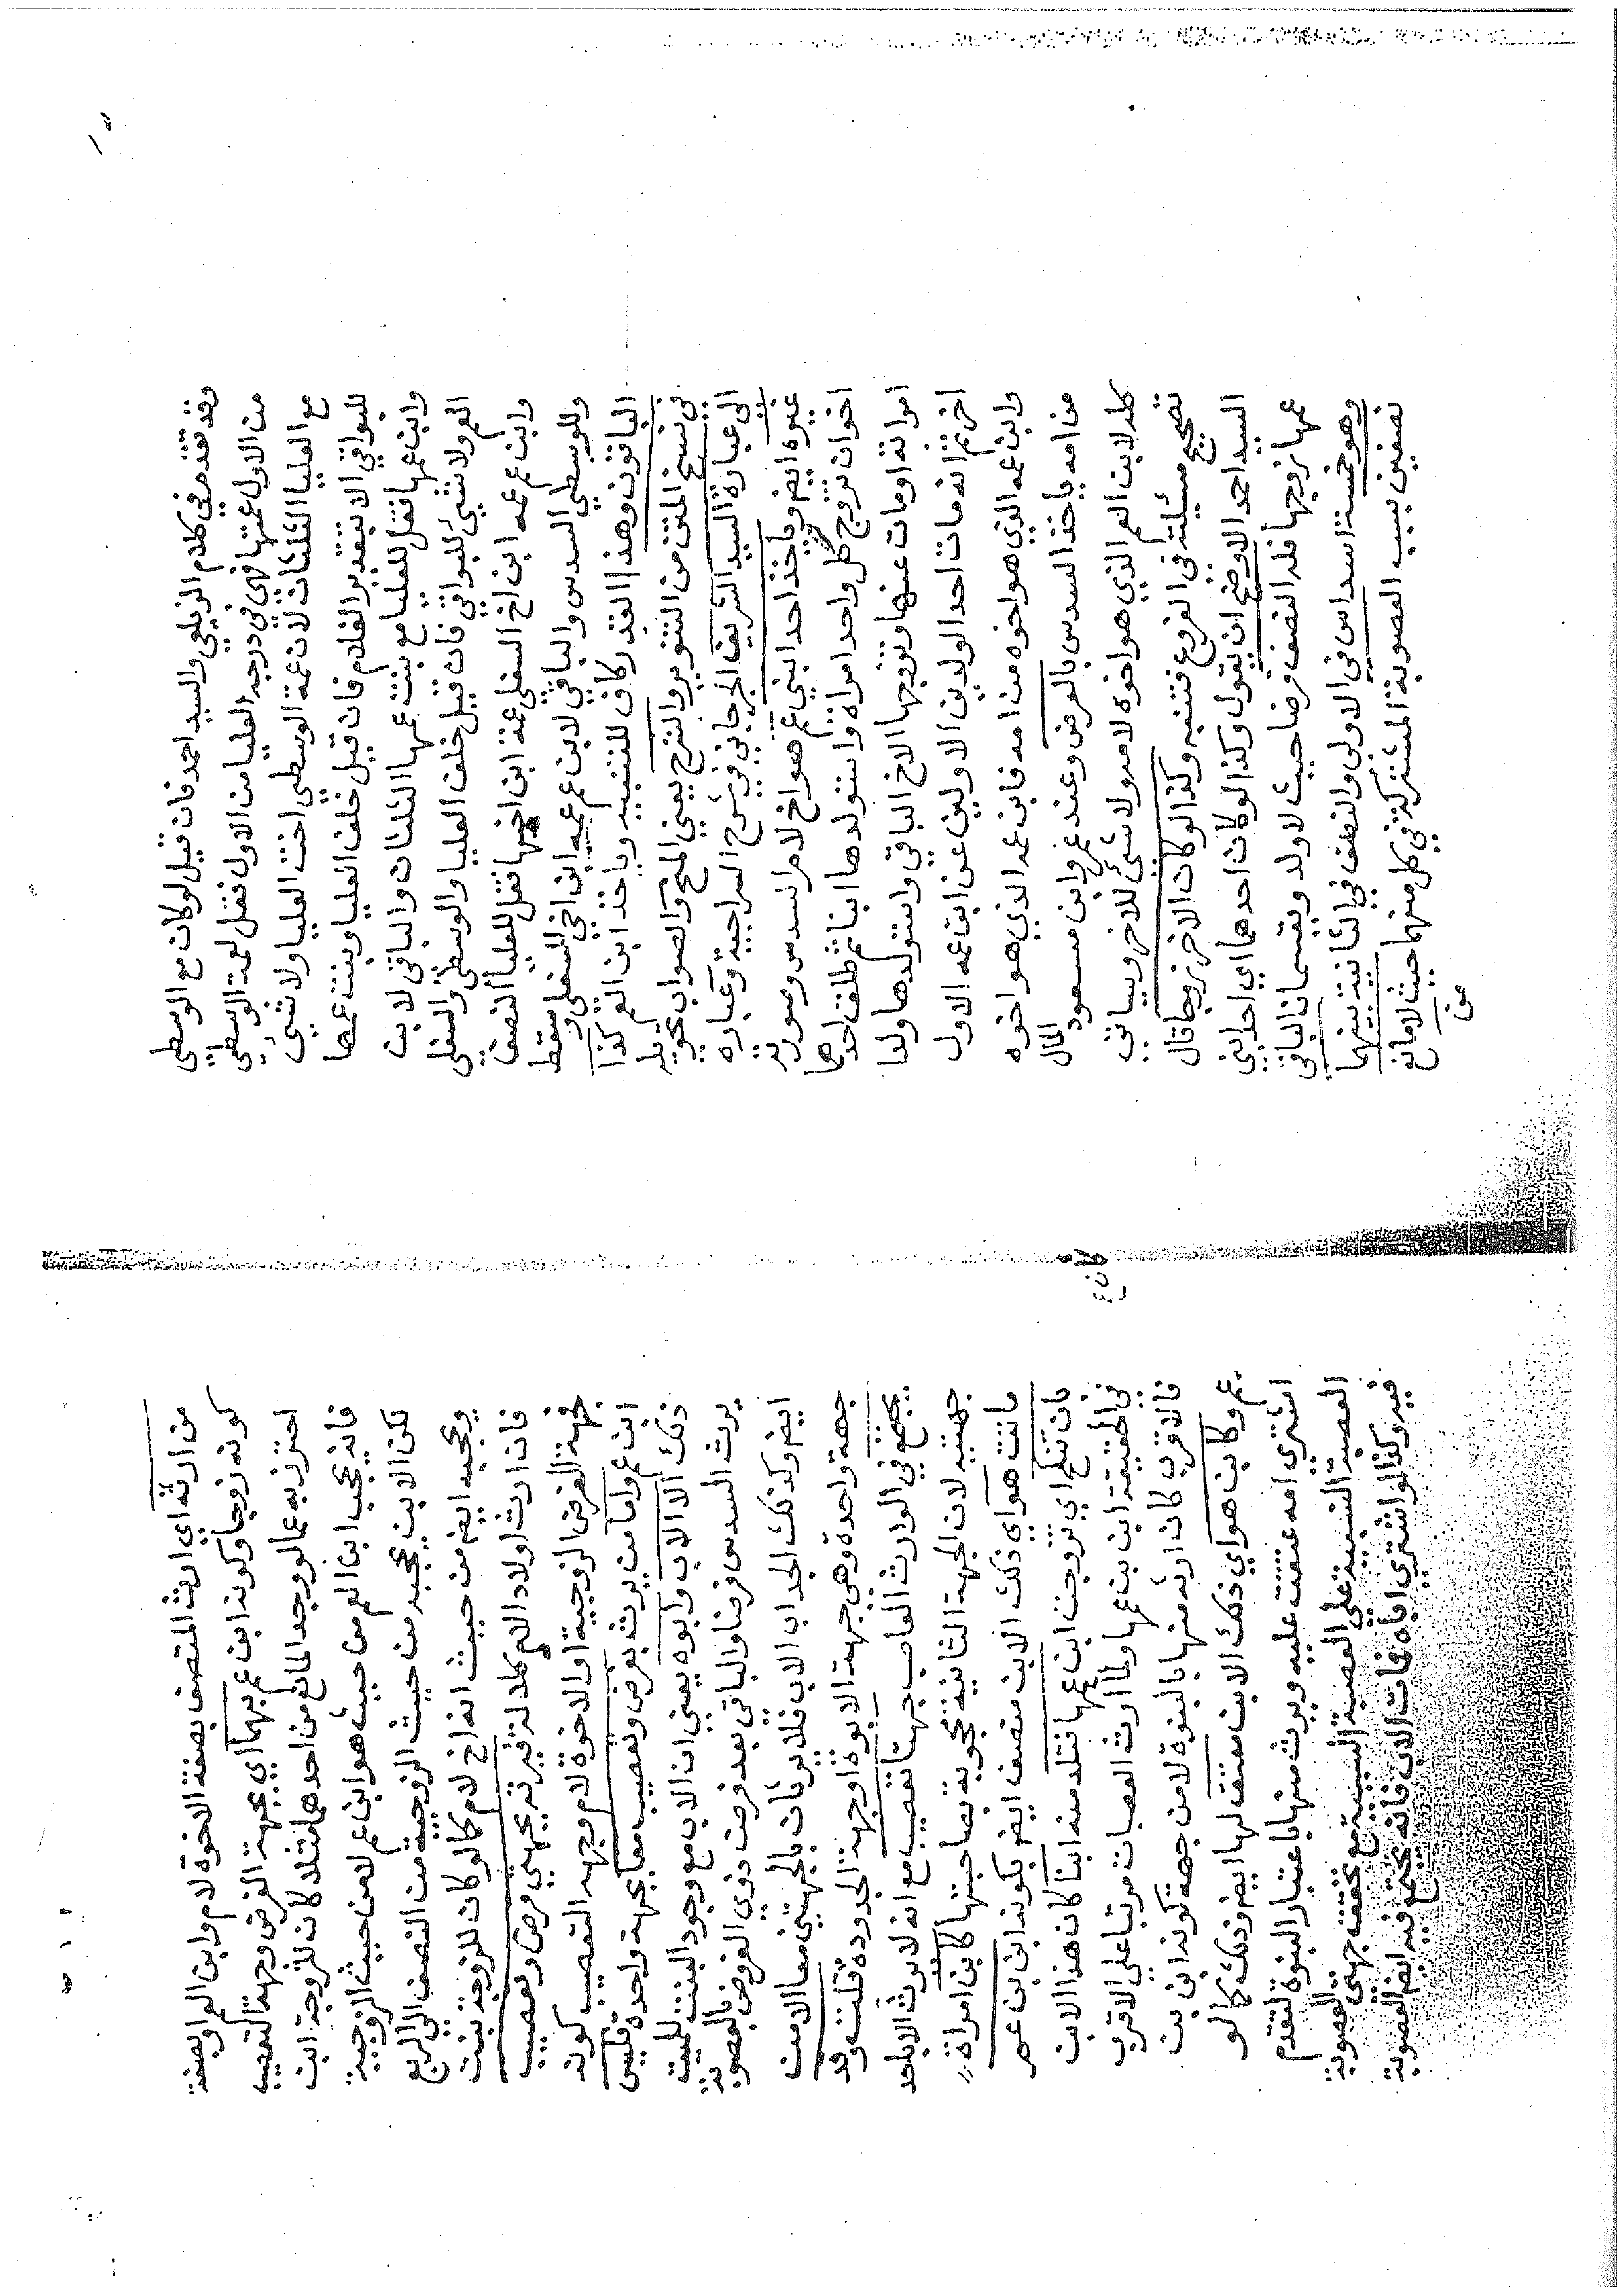 وقد تقدم في كلام الزيلعي والسيد احمد فان قيل لو كان مع الوسطي
من الاول عمتها فهي في درجه العليا من الاول فقل لعمة الوسطي
مع العليا الثلثان لان عمة الوسطي اخت العليا ولا شيء
للبواقي الا بتقدير الغلام فان قيل خلف العليا وبنت عمها
وابن عمها فقل للعليا مع بنت عمها الثلثان والباقي لابن
العم ولا شيئ للبواقي فان قيل خلف العليا والوسطي والسفلي
وابن عم عمه ابن اخ السفلي عمة ابن اخيها فقل للعليا النصف
وللوسطي السدس والباقي لابن عم عمه ابن اخي السفلي وسقط
الباقون وهذا القدر كاف للتنبيه وياخذ ابن العم كذا
في نسخ المتن من التنوير والشرح يعني المنح والصواب تحويله
الي عبارة السيد الشريف الجرجاني في شرح السراجية وعباره
غيره ايضا وياخذ احد ابني عم هو اخ لام السدس وصورته
اخوان تزوج كل واحد امراة واستولدها ابنا ثم طلق احدهما
امراته او مات عنها وتزوجها الاخ الباقي واستولدها ولدا
اخر ثم انه مات احد الولدين الاولين عن ابن عمه الاول
وابن عمه الذي هو اخوه من امه فابن عمه الذي هو اخوه
من امه ياخذ السدس بالفرض وعند عمر وابن مسعود المال
كله لابن العم الذي هو اخوه لامه ولا شئ للاخر وسياتي
تصحيح مسئلته في الفروع فتنبه وكذا لو كان الاخر زوجا قال
السيد احمد الاوضح ان يقول وكذا لو كان احدهما اي احد ابني
عمها زوجها فله النصف فرضا حيث لا ولد ويقسمان الباقي
وهو خمسة اسداس في الاولي والنصف في الثانية بينهما
نصفين بسبب العصوبة المشتركة في كل منهما حيث لا مانع
من
من ارثه اي ارث المتصف بصفة الاخوة لام وابن العم او بصفة
كونه زوجا وكونه ابن عم بهما اي بجهة الفرض وجهة التعصيب
احترز به عما لو وجد المانع من احدهما مثلا كان للزوجة ابن
فانه يحجب ابن العم من حيث هو ابن عم لا من حيث الزوجية
لكن الابن يحجبه من حيث الزوجية من النصف الي الربع
ويحجبه ايضا من حيث انه اخ لام كما لو كان للزوجة بنت
فان ارث اولاد الام كلالة قيرته بجهتي فرض وتعصيب
فجهة الفرض الزوجية او الاخوة لام وجهه التعصيب كونه
ابن عم واما من يرث بفرض وتعصيب معا بجهة واحده فليس
ذلك الا الاب وابوه يعني ان الاب مع وجود البنت للميت
يرث السدس فرضا والباقي بعد فرض ذوي الفروض بالعصوبة
ايضا وكذلك الجد اب الاب فلا يرثان بالجهتين معا الا من
جهة واحدة وهي جهة الابوة او جهة الجدوده قلت وقد
يجتمع في الوارث العاصب جهتا تعصيب مع انه لا يرث الا باحد
جهتيه لان الجهة الثانية محجوبة بصاحبتها كابن امراة
ماتت هو اي ذلك الابن متصف ايضا بكونه ابن ابن عم
بان تنكح اي تزوجت ابن عمها فتلد منه ابنا كان هذا الابن
في الحقيقة ابن ابن عمها ولما ارث العصبات مرتبا علي الاقرب
فالاقرب كان ارثه منها بالبنوة لا من جهة كونه ابن ابن
عم وكابن هو اي ذلك الابن معتق لها ايضا وذلك كما لو
كان ع
اشتري امه عتقت عليه ويرث منها باعتبار البنوة لتقدم
العصبة النسبية علي العصبة السببية مع تحققه جهتي العصوبة
فيه وكذا لو اشتري اباه فمات الاب فانه يجتمع فيه ايضا العصوبة